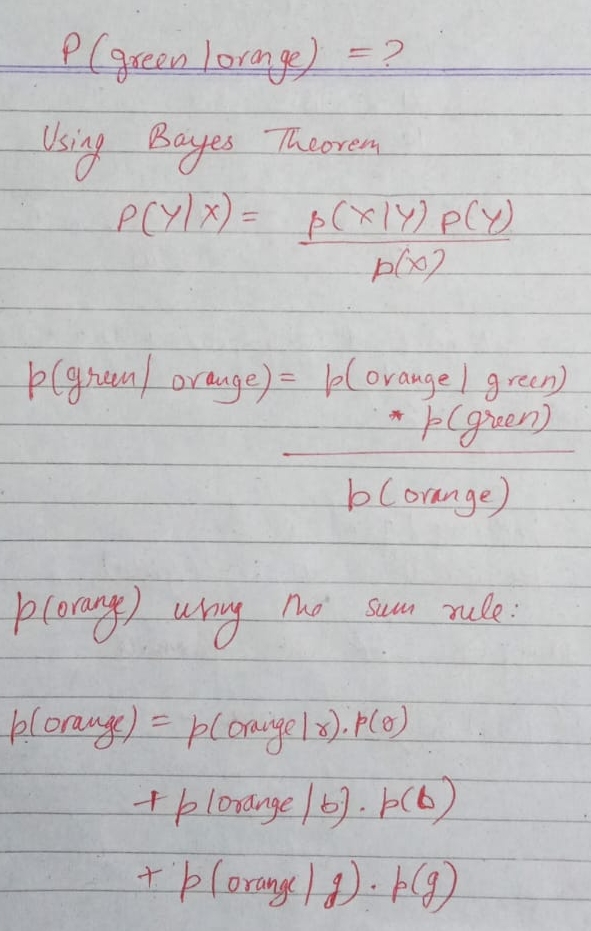 P(green|orange) = ?
Using Bayes Theorem
P(Y|X) = p(X|Y) p(Y)
p(x)
p(green/ orange) = p(orange| green)
* p(green)
p(orange)
p(orange) using the sum rule:
p(orange) = p(orange|r).p(r)
+ p(orange/b). p(b)
+ p(orange|g). p(g)